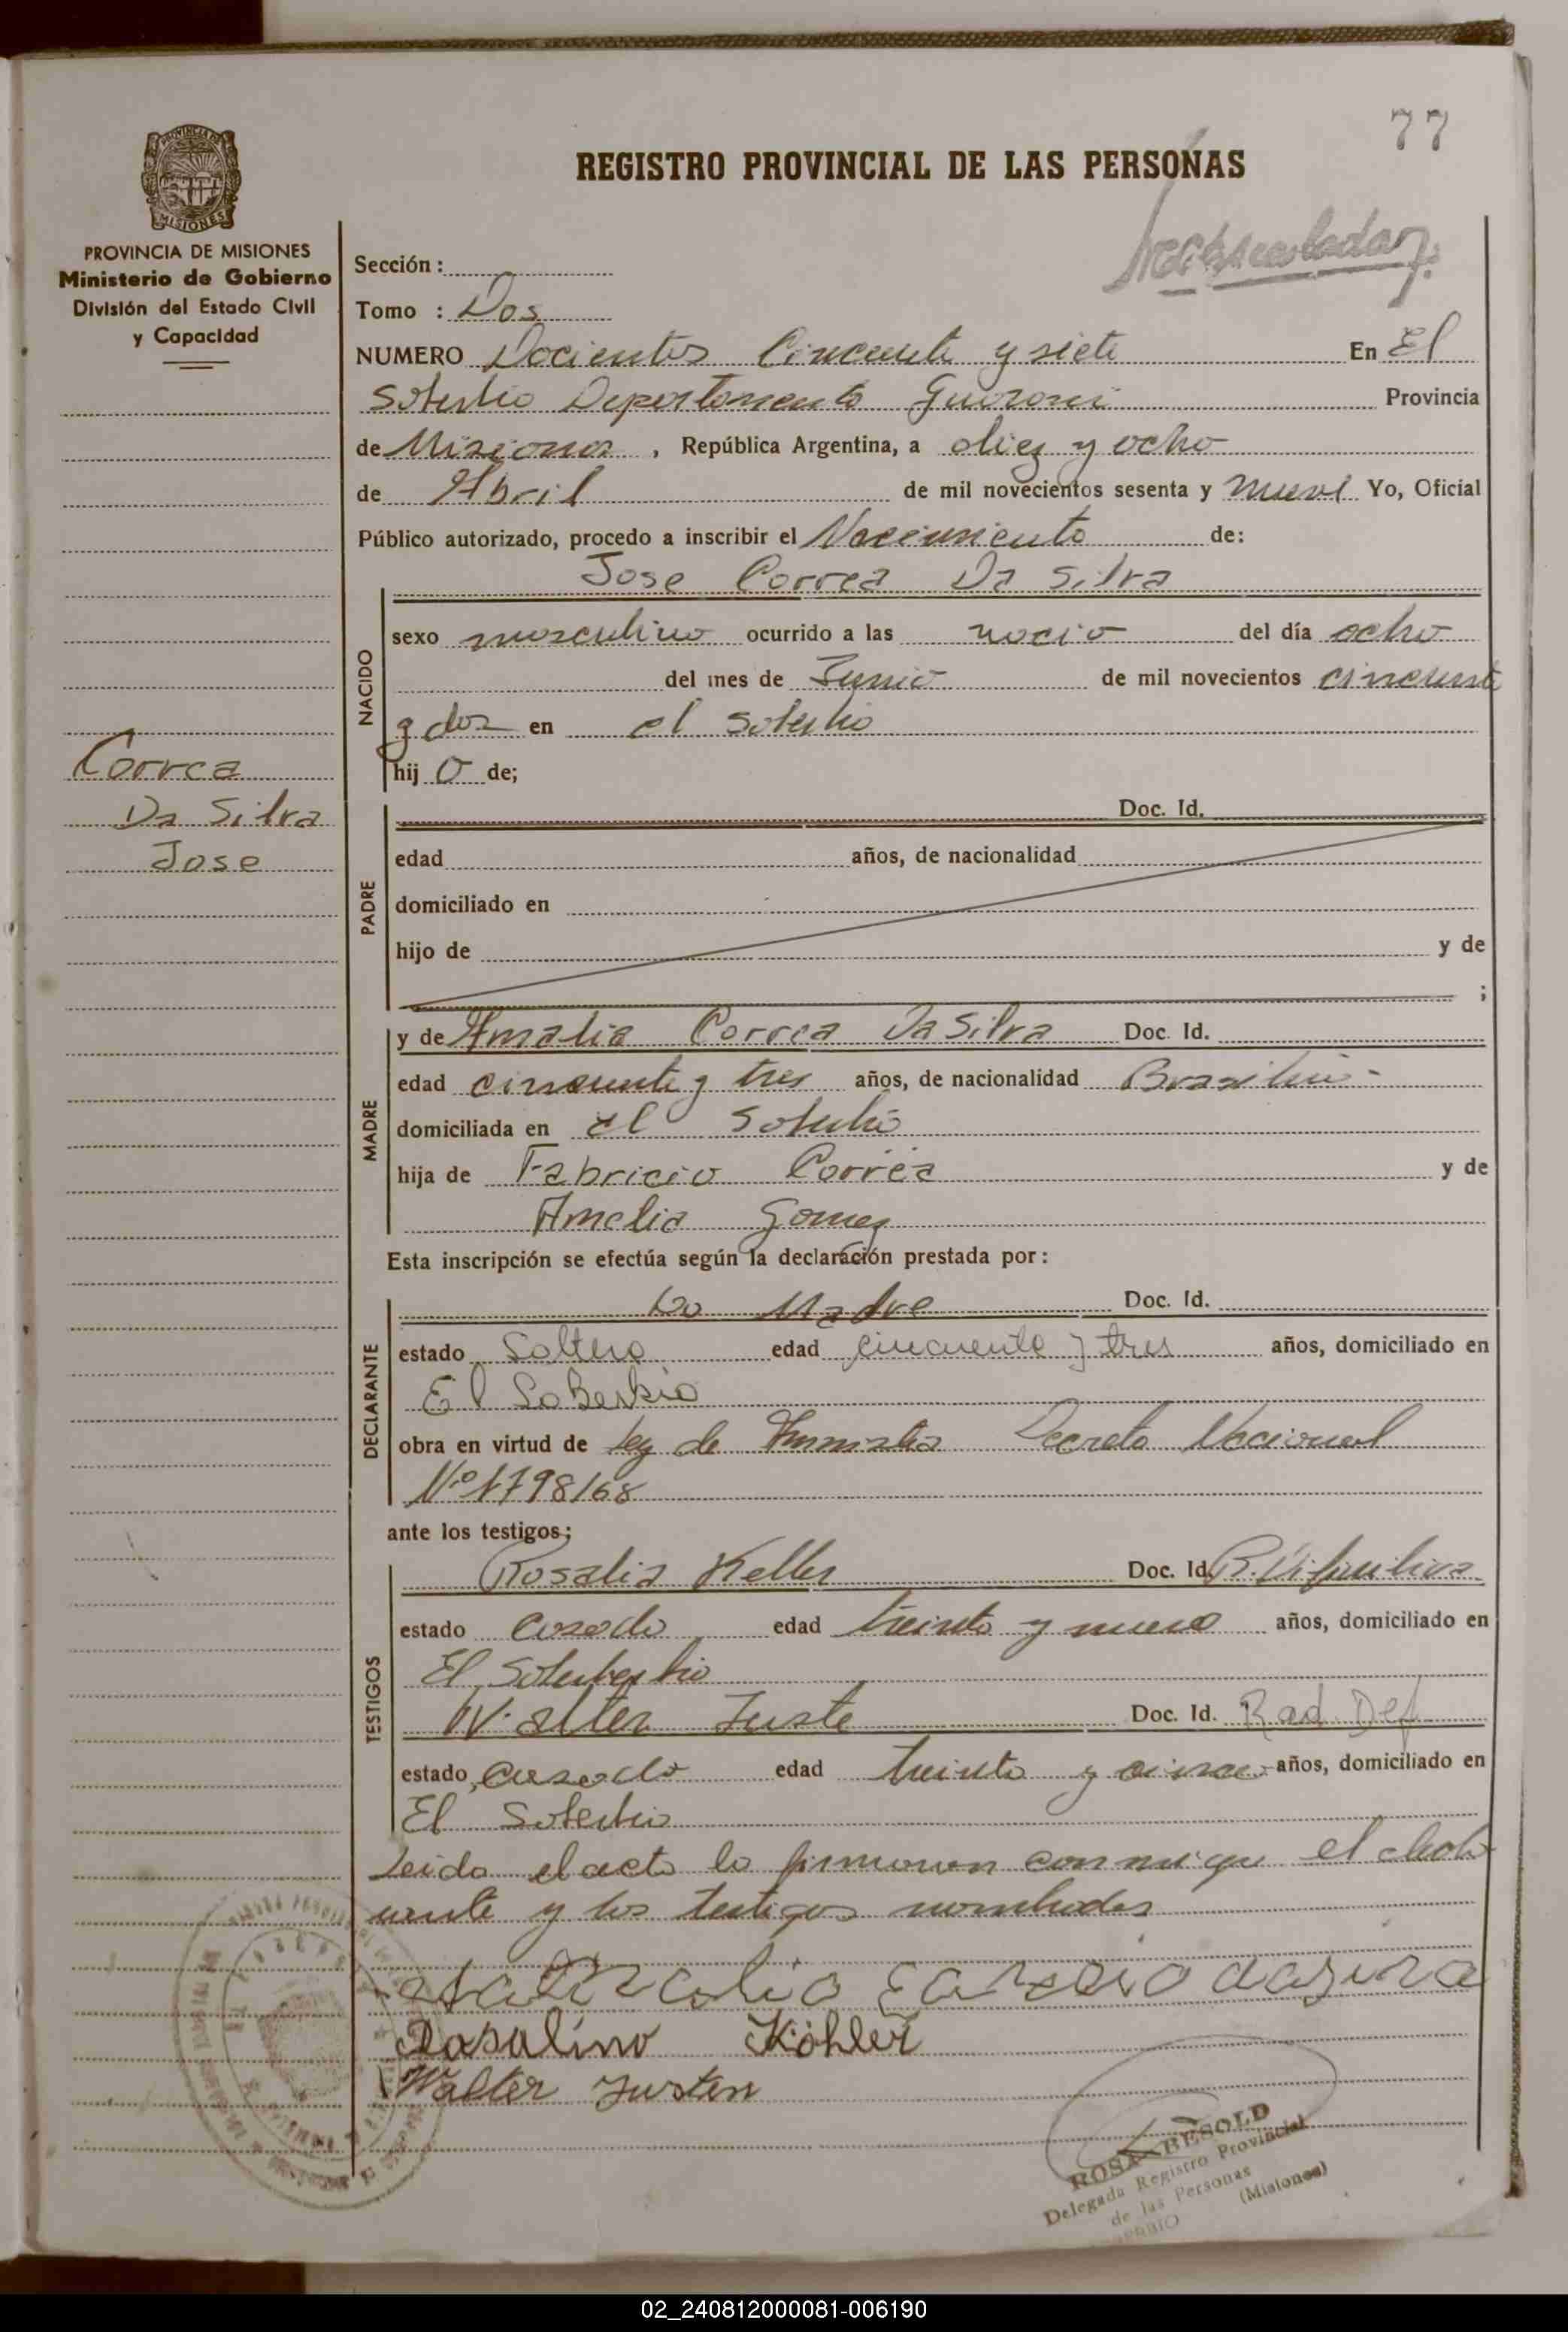 77
REGISTRO PROVINCIAL DE LAS PERSONAS
PROVINCIA DE MISIONES
Ministerio de Gobierno
División del Estado Civil
y Capacidad
Sección :
Tomo : Dos
NUMERO Docientos Cincuenta y siete En El
Soberbio Departamento Guarani Provincia
de Misiones , República Argentina, a diez y ocho
de Abril de mil novecientos sesenta y nueve Yo, Oficial
Público autorizado, procedo a inscribir el Nacimiento de:
Jose Correa Da Silva
NACIDO
sexo masculino ocurrido a las nacio del día ocho
del mes de Junio de mil novecientos cincuenta
y dos en el Soberbio
hij o de;
Correa
Da Silva
Jose
PADRE
Doc. Id.
edad años, de nacionalidad
domiciliado en
hijo de y de
;
MADRE
y de Amalia Correa Da Silva Doc. Id.
edad cincuenta y tres años, de nacionalidad Brasilia-
domiciliada en el Soberbio
hija de Fabricio Correa y de
Amelia Gomez
Esta inscripción se efectúa según la declaración prestada por :
DECLARANTE
La Madre Doc. Id.
estado Soltera edad cincuenta y tres años, domiciliado en
El Soberbio
obra en virtud de ley de Amnistia Decreto Nacional
Nº 1798/68
ante los testigos;
TESTIGOS
Rosalia Keller Doc. Id.
estado casado edad treinta y nueve años, domiciliado en
El
Walter Juste Doc. Id. Rad. Def
estado casado edad treinta y cinco años, domiciliado en
El Soberbio
Leida el acta la firmaron conmigo el decla
rante y los testigos nombrados
Rosalino Köhler
Walter Justen
ROSA BESOLD
Delegada Registro Provincial
de las Personas
(Misiones)
02_240812000081-006190